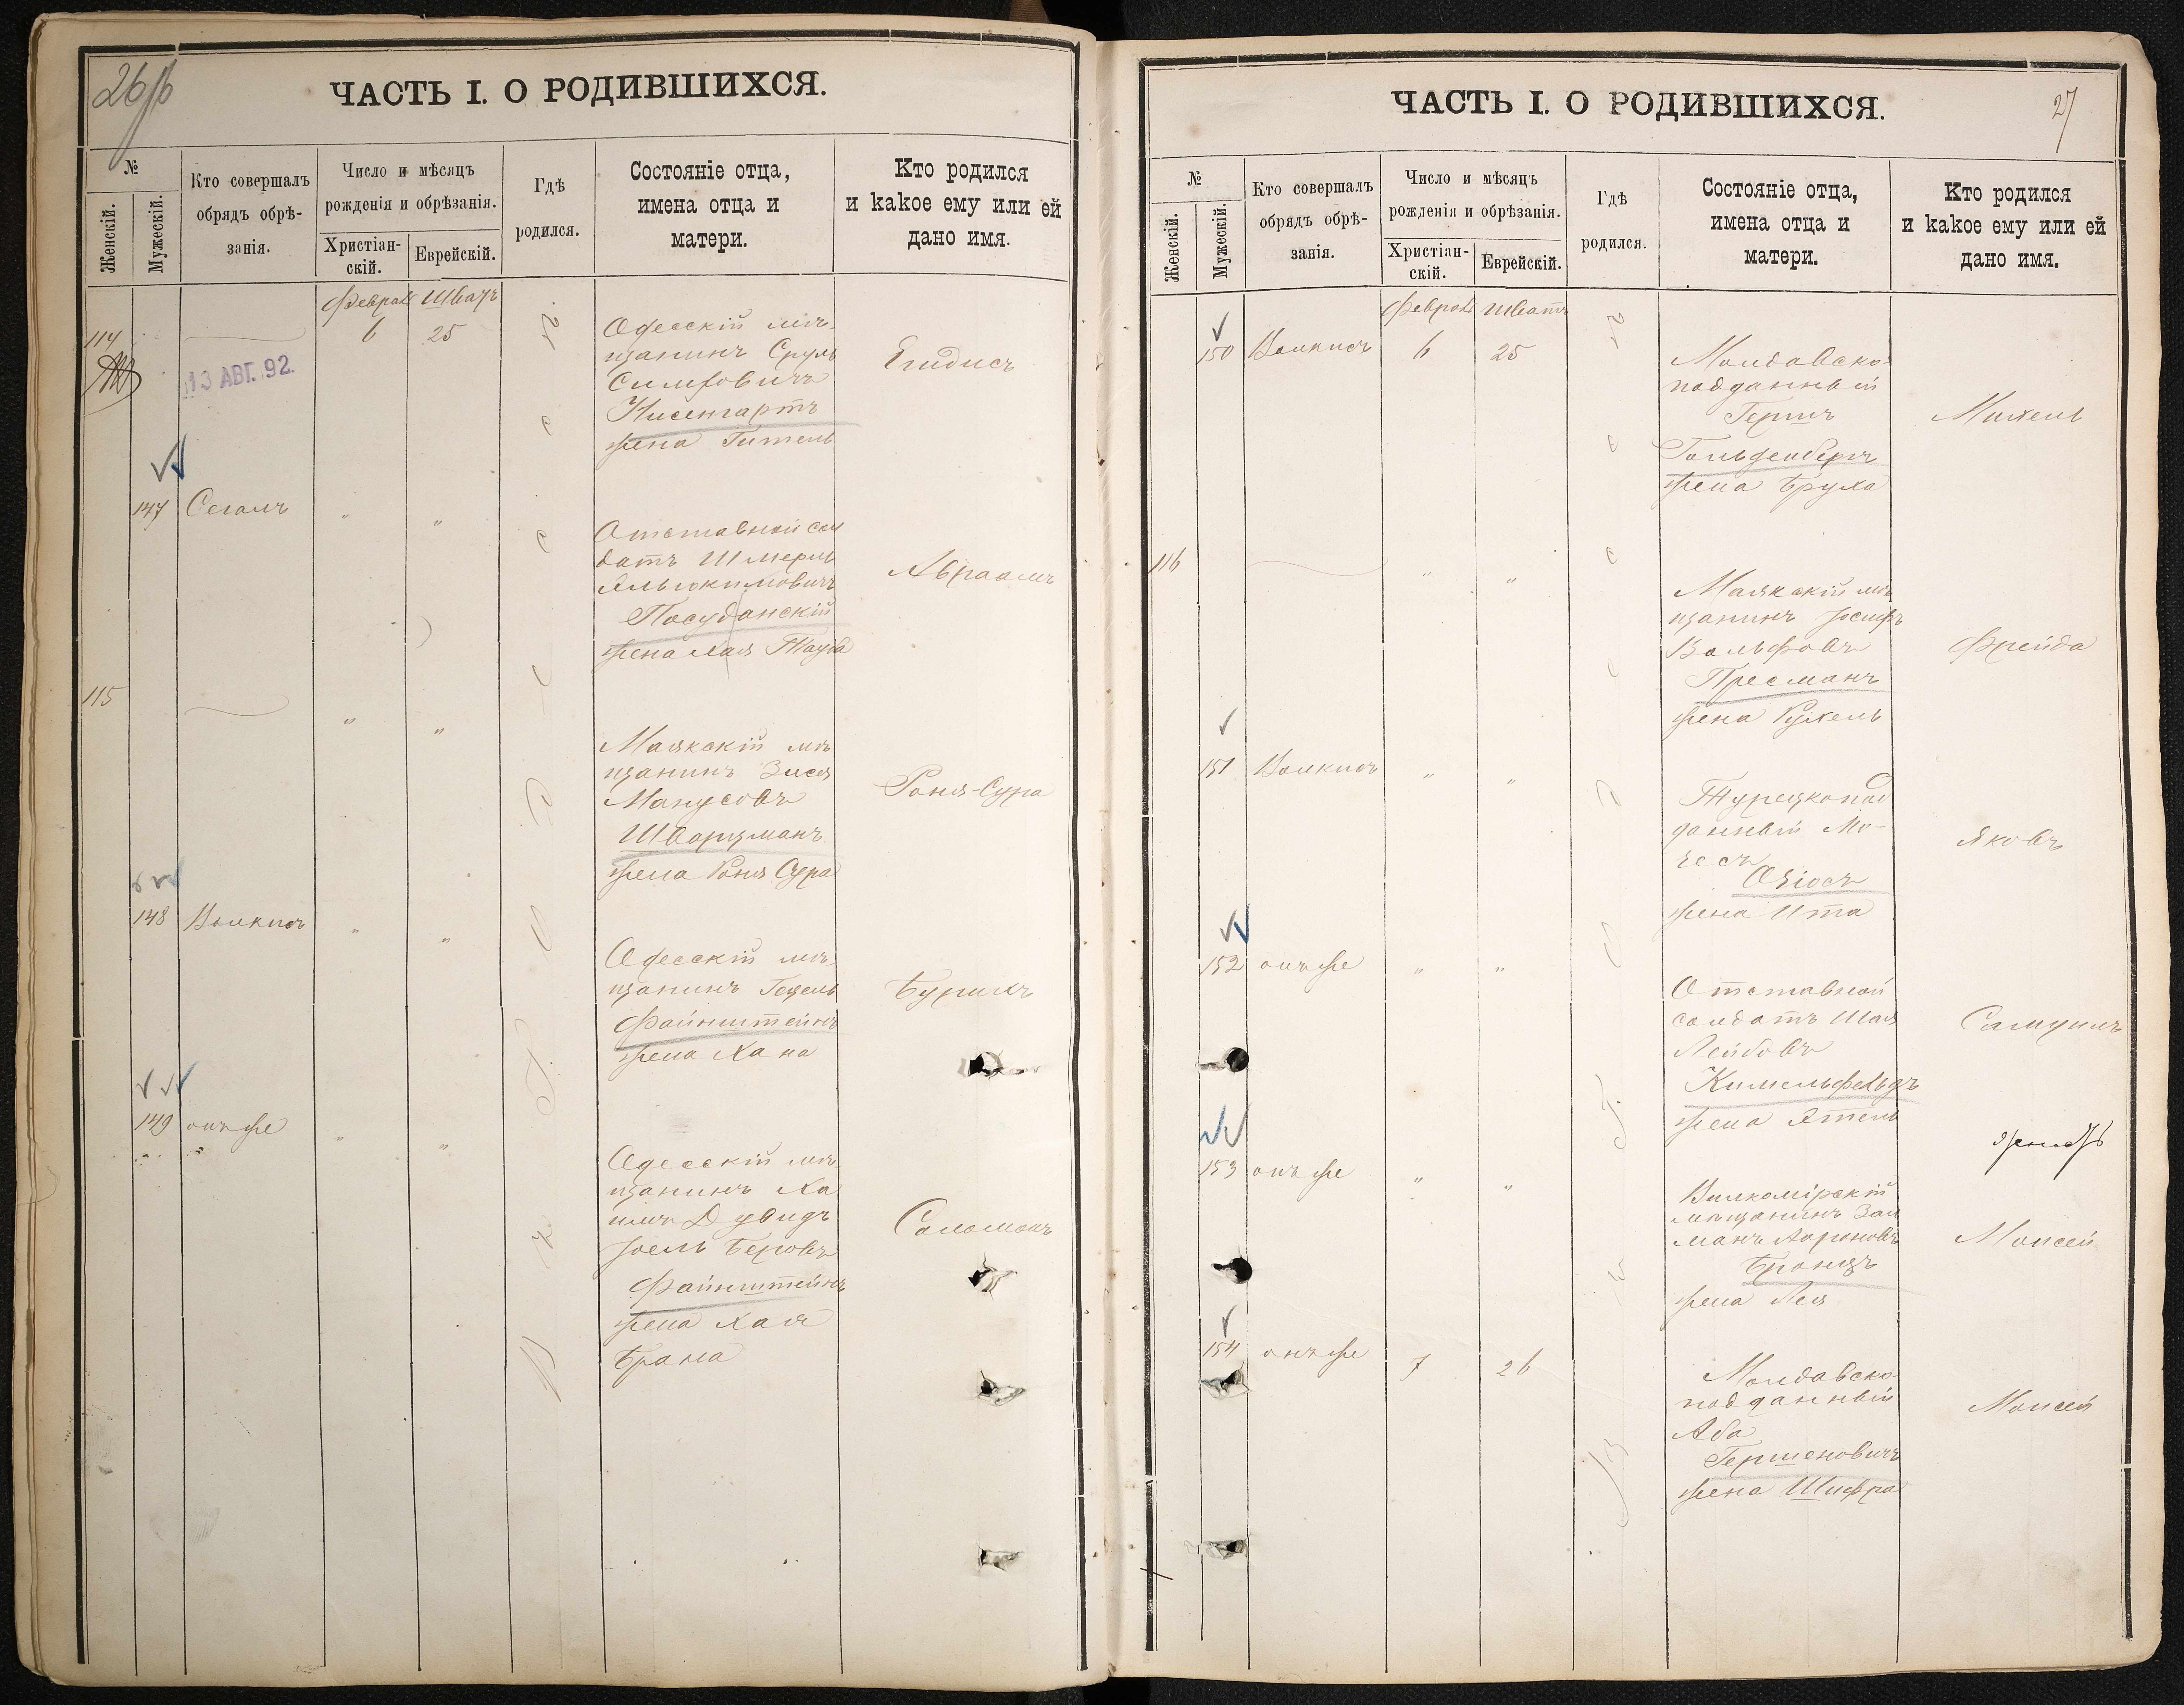 26/б
ЧАСТЬ I. О РОДИВШИХСЯ.
№
Женскій.
Мужескій.
Кто совершалъ
обрядъ обрѣ-
занія.
Число и мѣсяцъ
рожденія и обрѣзанія.
Христіан-
скій.
Еврейскій.
Гдѣ
родился.
Состояніе отца,
имена отца и
матери.
Кто родился
и какое ему или ей
дано имя.
Шватъ
114
6
25
13 АВГ. 92.
Одесскій мѣ-
щанинъ Сруль
Нисенгартъ
жена Гитель
147
Сегалъ
"
"
Отставной сол
датъ Шмерль
Посуданскій
жена Хая Тауба
Авраамъ
115
"
"
Маякскій мѣ
щанинъ Зися
Манусовъ
Шварцманъ
жена Роня Сура
Роня-Сура
148
Волкисъ
"
"
Одесскій мѣ
щанинъ Гецель
Файнштейнъ
жена Хана
Бурихъ
149
онъ же
"
"
Одесскій мѣ
щанинъ Ха
имъ Дувидъ
Іоель Беровъ
Файнштейнъ
жена Хая
Брана
Соломонъ
27
ЧАСТЬ I. О РОДИВШИХСЯ.
№
Женскій.
Мужескій.
Кто совершалъ
обрядъ обрѣ-
занія.
Число и мѣсяцъ
рожденія и обрѣзанія.
Христіан-
скій.
Еврейскій.
Гдѣ
родился.
Состояніе отца,
имена отца и
матери.
Кто родился
и какое ему или ей
дано имя.
Шватъ
150
Волкисъ
6
25
Молдавско-
подданный
Гершъ
Гольденбергъ
жена Бруха
Михель
116
"
"
Маякскій мѣ
щанинъ Іосифъ
Вольфовъ
Пресманъ
жена Рухель
Фрейда
151
Волкисъ
"
"
Турецкопод
данный Мо-
зесъ
жена Ита
Яковъ
152
онъ же
"
"
Отставной
солдатъ Шая
Лейбовъ
Кимельфельдъ
жена Этель
Самуилъ
153
онъ же
"
"
Вилкомірскій
мѣщанинъ Зал
манъ Ароновъ
Бронзъ
жена Лея
Моисей
154
онъ же
7
26
Молдавско-
подданный
Аба
Гершеновичъ
жена Шифра
Моисей